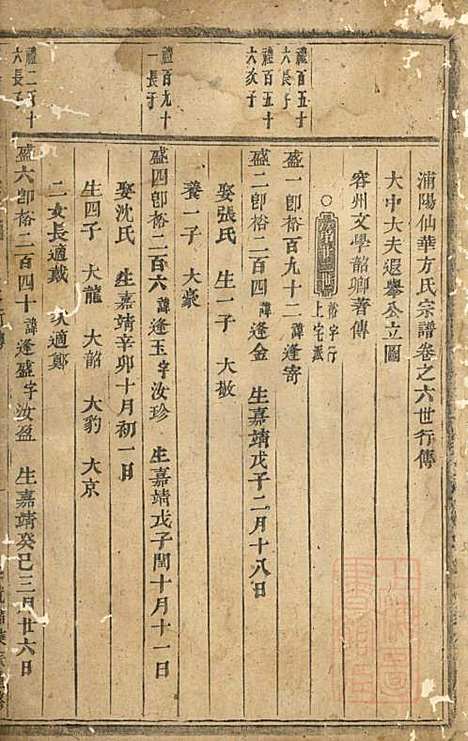 浦陽仙華方氏宗譜卷之六世行傳
大中大夫遐舉公立圖
容州文學韶卿著傳
裕字行
上宅派
禮百五十
六長子
盛一卽裕百九十二 諱逢寄
禮百五十
六次子
盛二卽裕二百四 諱逢金 生嘉靖戊子二月十八日
娶張氏 生一子 大散
養一子 大豪
禮百九十
一長子
盛四卽裕二百六 諱逢玉 字汝珍 生嘉靖戊子閏十月十一日
娶沈氏 生嘉靖辛卯十月初一日
生四子 大龍 大韶 大豹 大京
二女長適戴 次適鄭
禮二百十
六長子
盛六卽裕二百四十 諱逢盛 字汝盈 生嘉靖癸巳三月廿六日